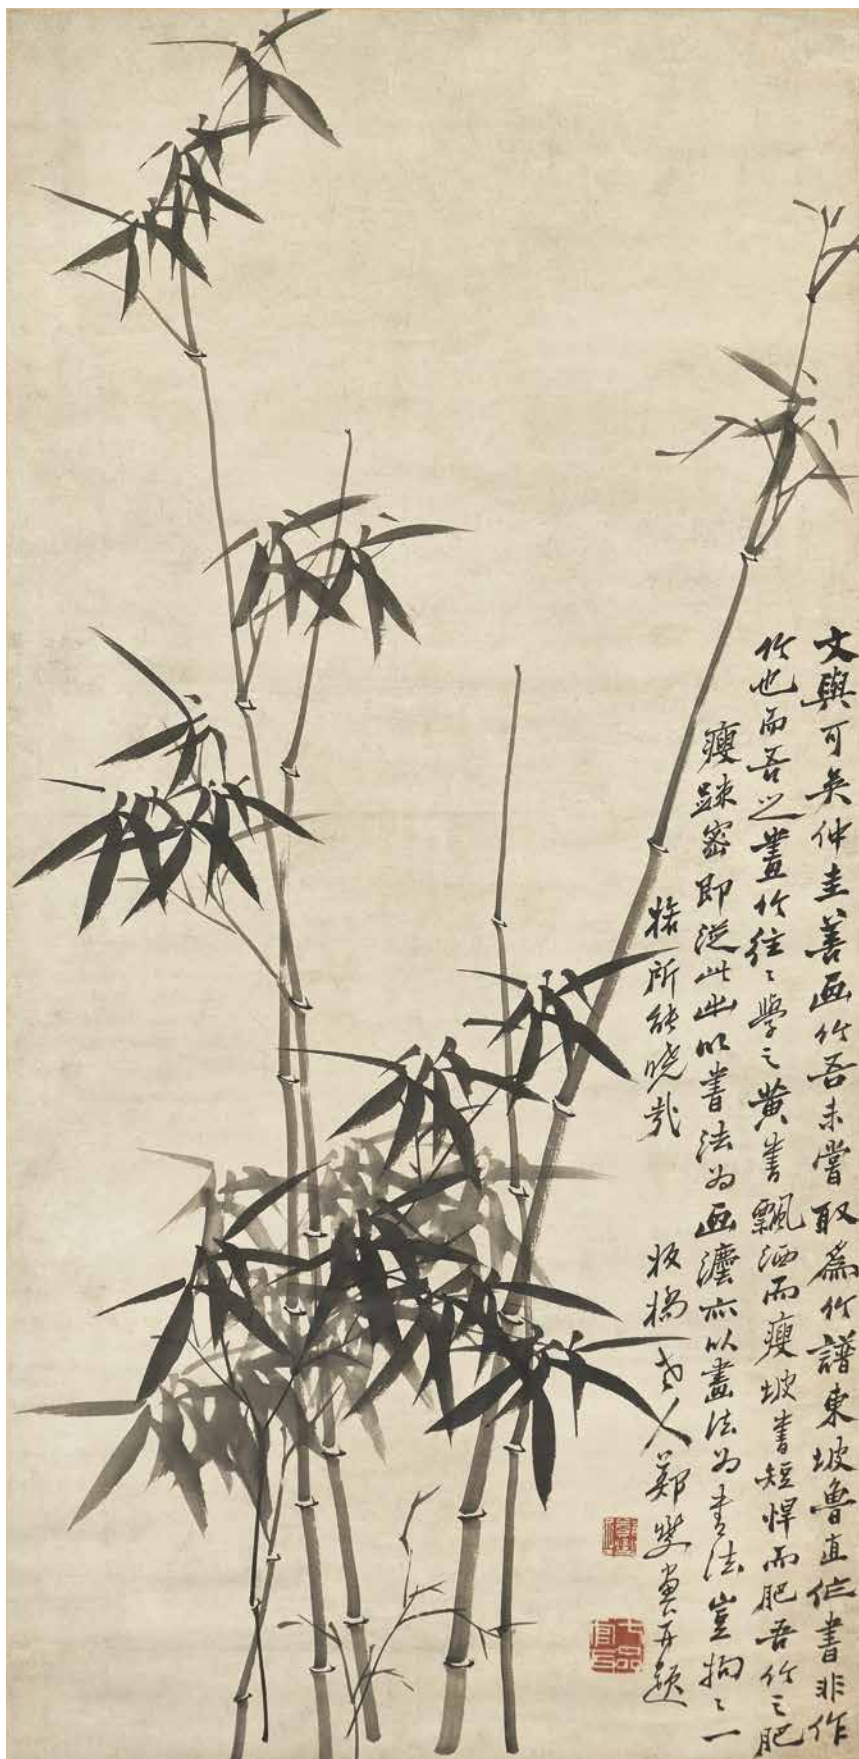 文與可吳仲圭善画竹吾未嘗取爲竹譜東坡魯直作書非作
竹也而吾之畫竹往〻學之黃書飄洒而瘦坡書短悍而肥吾竹之肥
瘦踈密即從此出以書法为画灋亦以畫法为書法豈拘〻一
格所能曉哉
板橋老人鄭燮畫并題
七品官耳